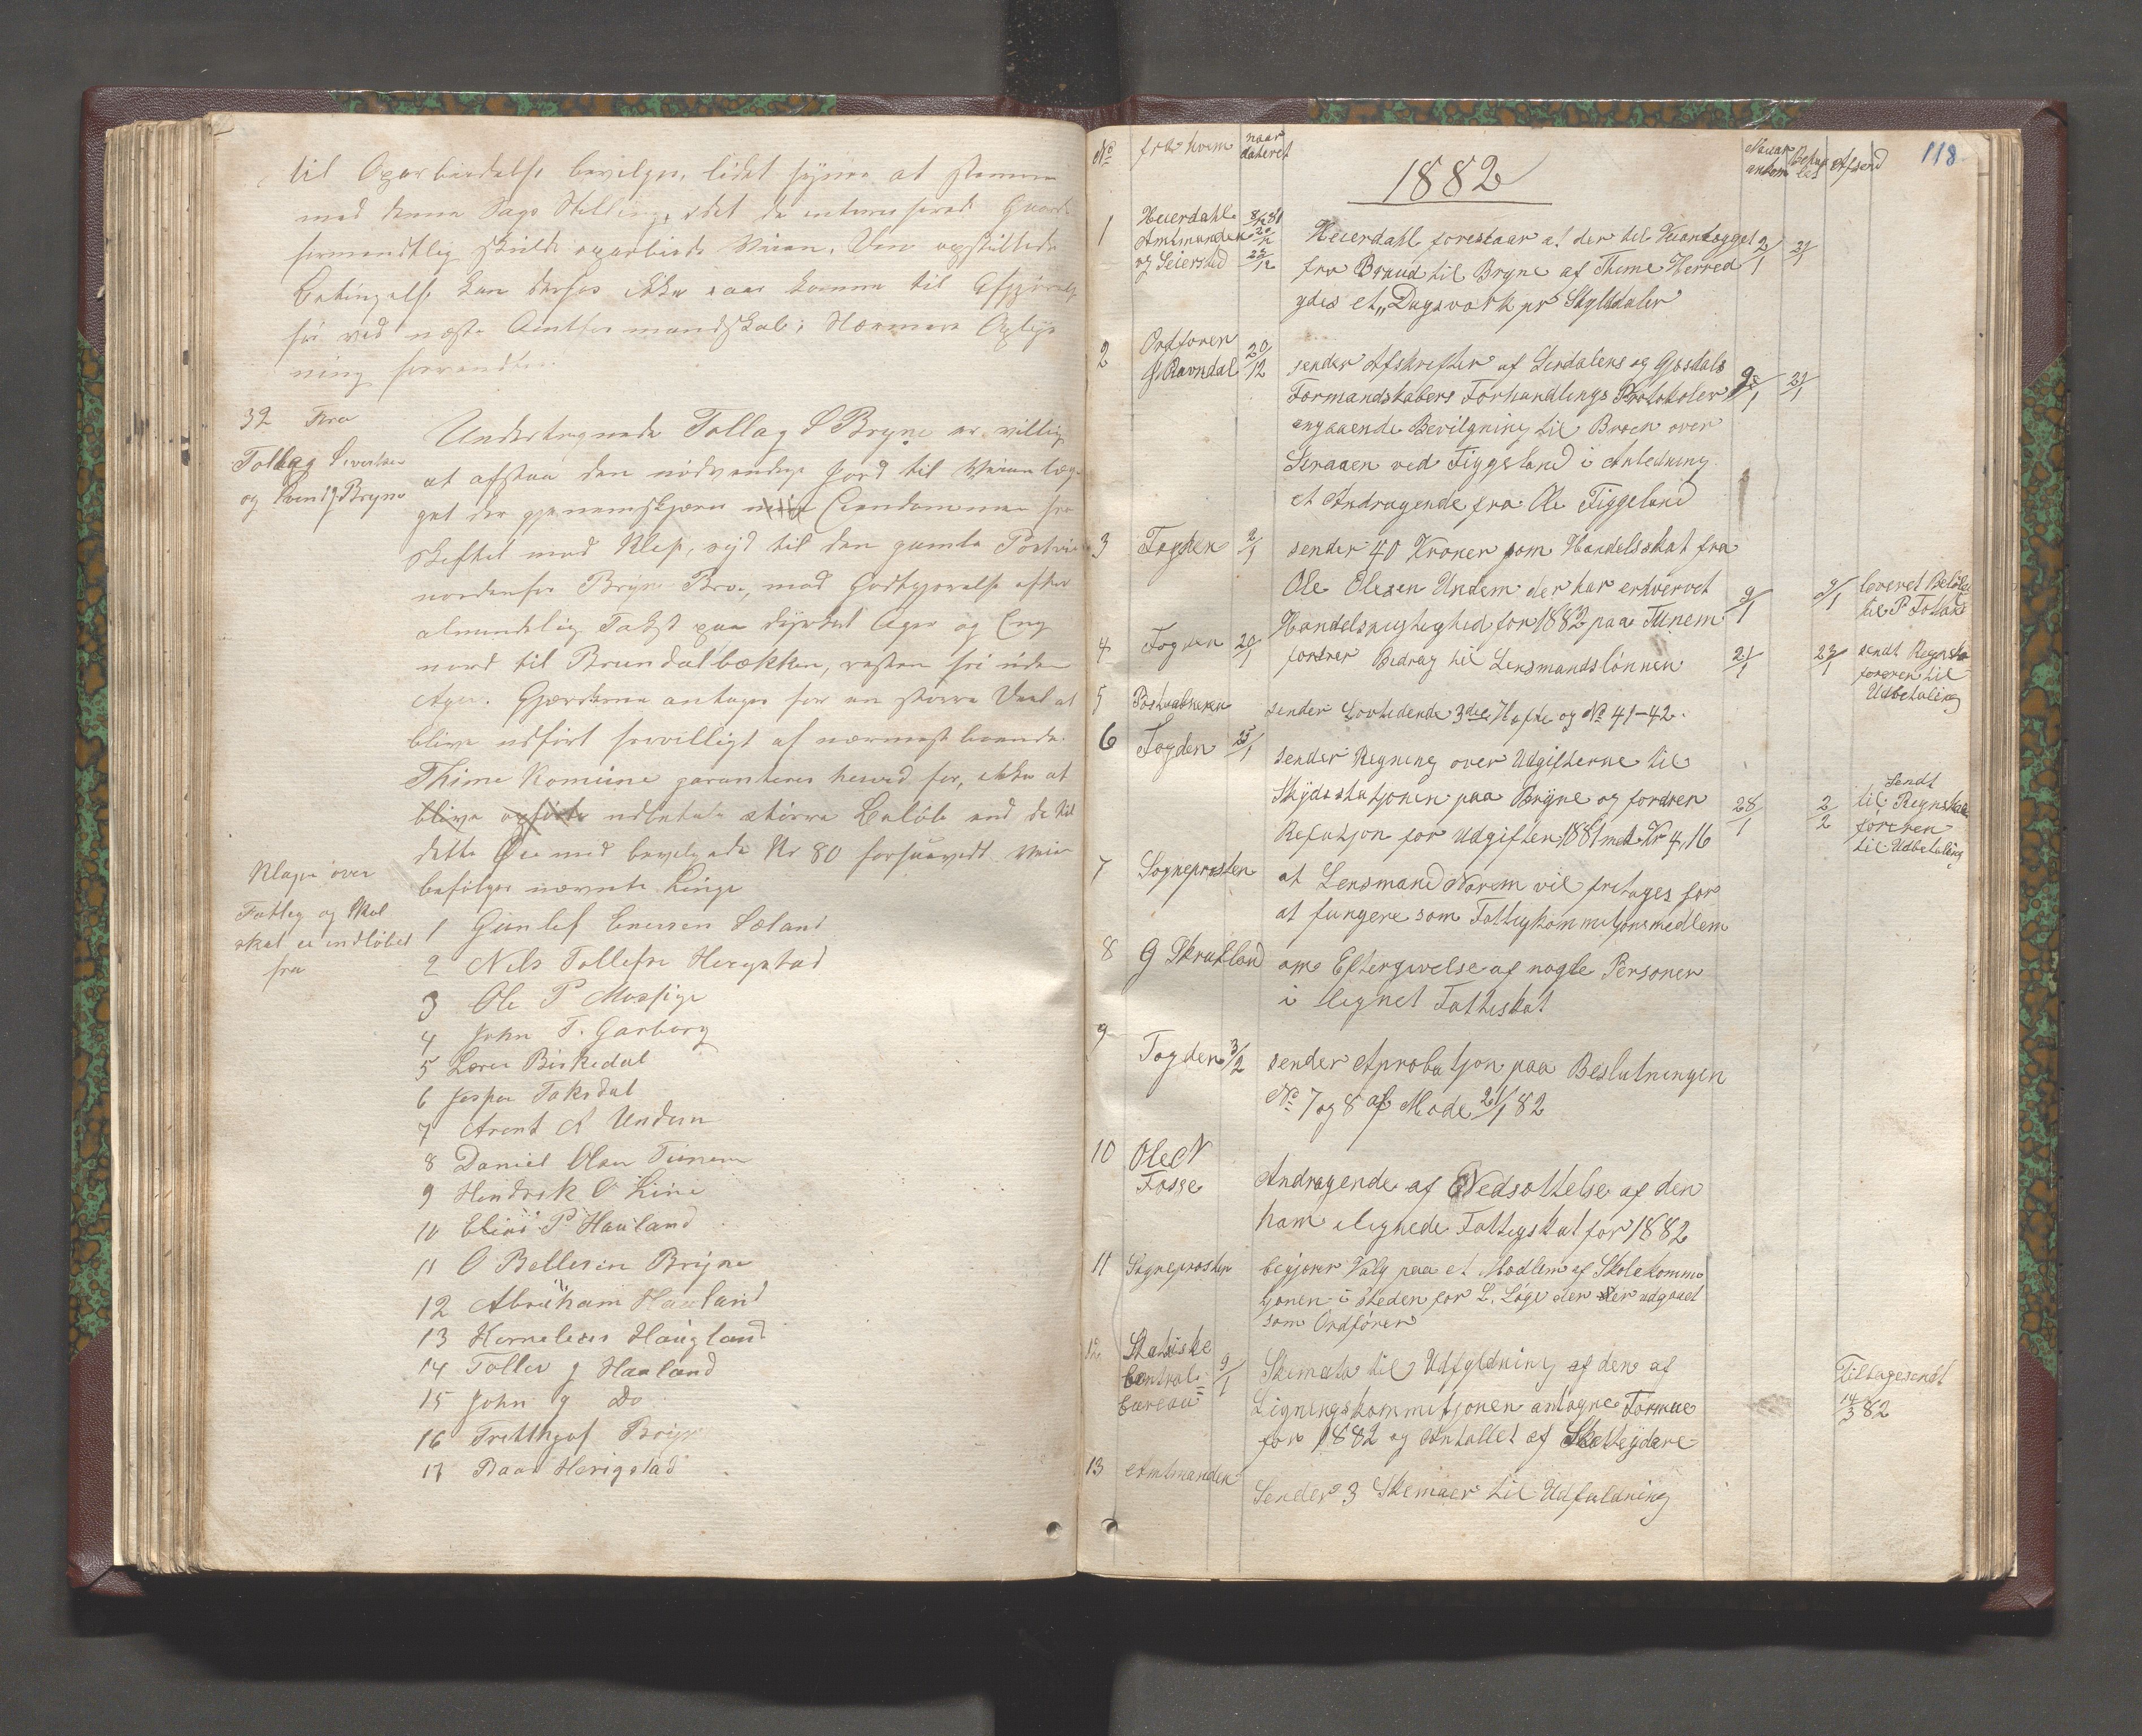 til Oparbeidelse bevilges, lidet synes at stemme
med denne Sags Stilling, idet de interesserede
formentlig skulde oparbeide Veien. Den opstillede
Betingelse kan derfor ikke komme til
før ved næste Amtsformandskab; Nærmere Oplys
ning
32 Fra
Tollag Sivertsen
og Bryne
Undertegnede Tollag S Bryne er villig
at afstaa den nødvendige Jord til Veianlæg
get der gjennemskjærer Eiendommen fra
Skiftet med Klep, syd til den gamle Postvei
nordenfor Bryne Bro, mod Godtgjørelse efter
almindelig Takst paa dyrket Ager og Eng
nord til Brundalbækken, resten fri uden
Ager. Gjærderne antages for en større Deel at
blive udført frivilligt af nærmest boende.
Thime Komune garanteres herved for, ikke at
blive opførte udbetale større Beløb end de til
dette Øiemed bevilgede Kr 80 forsaavidt Veien
befølger nævnte Linje
Klage over
Fattig og Skol
skat er indløbet
fra
1 Gunlef Enersen Sæland
2 Nils Tollefse Herigstad
3 Ole P Mossige
4 John T. Garborg
5 Lars Birkedal
6 Jesper Taksdal
7 Arent A Undem
8 Daniel Olsen Tunem
9 Hendrik O Line
10 Elias P Hauland
11 O Bellesen Bryne
12 Abraham Hauland
13 Kornelius Haugland
14 Tollev G Haaland
15 John G Do
16 Bryne
17 Baar Herigstad
118
No fra hvem naar dateret
1882
Naar ankom Behandles Afsend
1 Heierdahl 8/12 81
Amtmanden 20/12
og Seiersted 22/12
Heierdahl foreslaar at der til Veianlægget 2/1 21/1
fra Braud til Bryne af Thime Herred
ydes et "Dagsværk pr Skylddaler"
2 Ordføren
J. Ravndal 20/12
sender Afskrifter af Sirdalens og Gjesdals
Formandskabers Forhandlings Protokoler 9/1 21/1
angaaende Bevilgning til Broen over
Siraaen ved Figgeland i Anledning
et Andragende fra Ole Figgeland
3 Fogden 2/1 sender 40 Kroner som Handelsskat fra
Ole Olesen Undem der har erhvervet
Handelsrettighed for 1882 paa Tunem 9/1 9/1 leveret Beløbet
til P Fotland
4 Fogden 20/1 fordrer Bidrag til Lensmandslønnen 21/1 23/1 sendt Regnska
føreren til
Udbetaling
5 Postaabneren sender Lovtidende 3die Hefte og No 41-42.
6 Fogden 25/1 sender Regning over Udgifterne til
Skydsstatjonen paa Bryne og fordrer 28/1 2/2 Sendt
til Regnskabs
føreren
til Udbetaling
Refutjon for Udgiften 1881 med Kr 4,16
7 Sognepresten at Lensmand Norem vil fritages for
at fungere som Fattigkommitjonsmedlem
8 G Skrukland om Eftergivelse af nogle Personer
i lignet Fattiskat
9 Fogden 3/2 sender Aprobatjon paa Beslutningen
No 7 og 8 af Møde 21/1 82
10 Ole N
Fosse
Andragende af Nedsættelse af den
ham ilignede Fattigskat for 1882
11 Sognepresten begjærer Valg paa et Medlem af Skolekommi
tjonen i Steden for L. Löge der er udgaaet
som Ordfører
12 Statistiske
Central- 9/1
bureau
Skemata til Udfyldning af den af
Ligningskommitjonen antagne Formue
for 1882 og Antallet af Skatteydere
Tilbagesendt
14/3 82
13 Amtmanden
Sender 3 Skemaer til Udfuldning